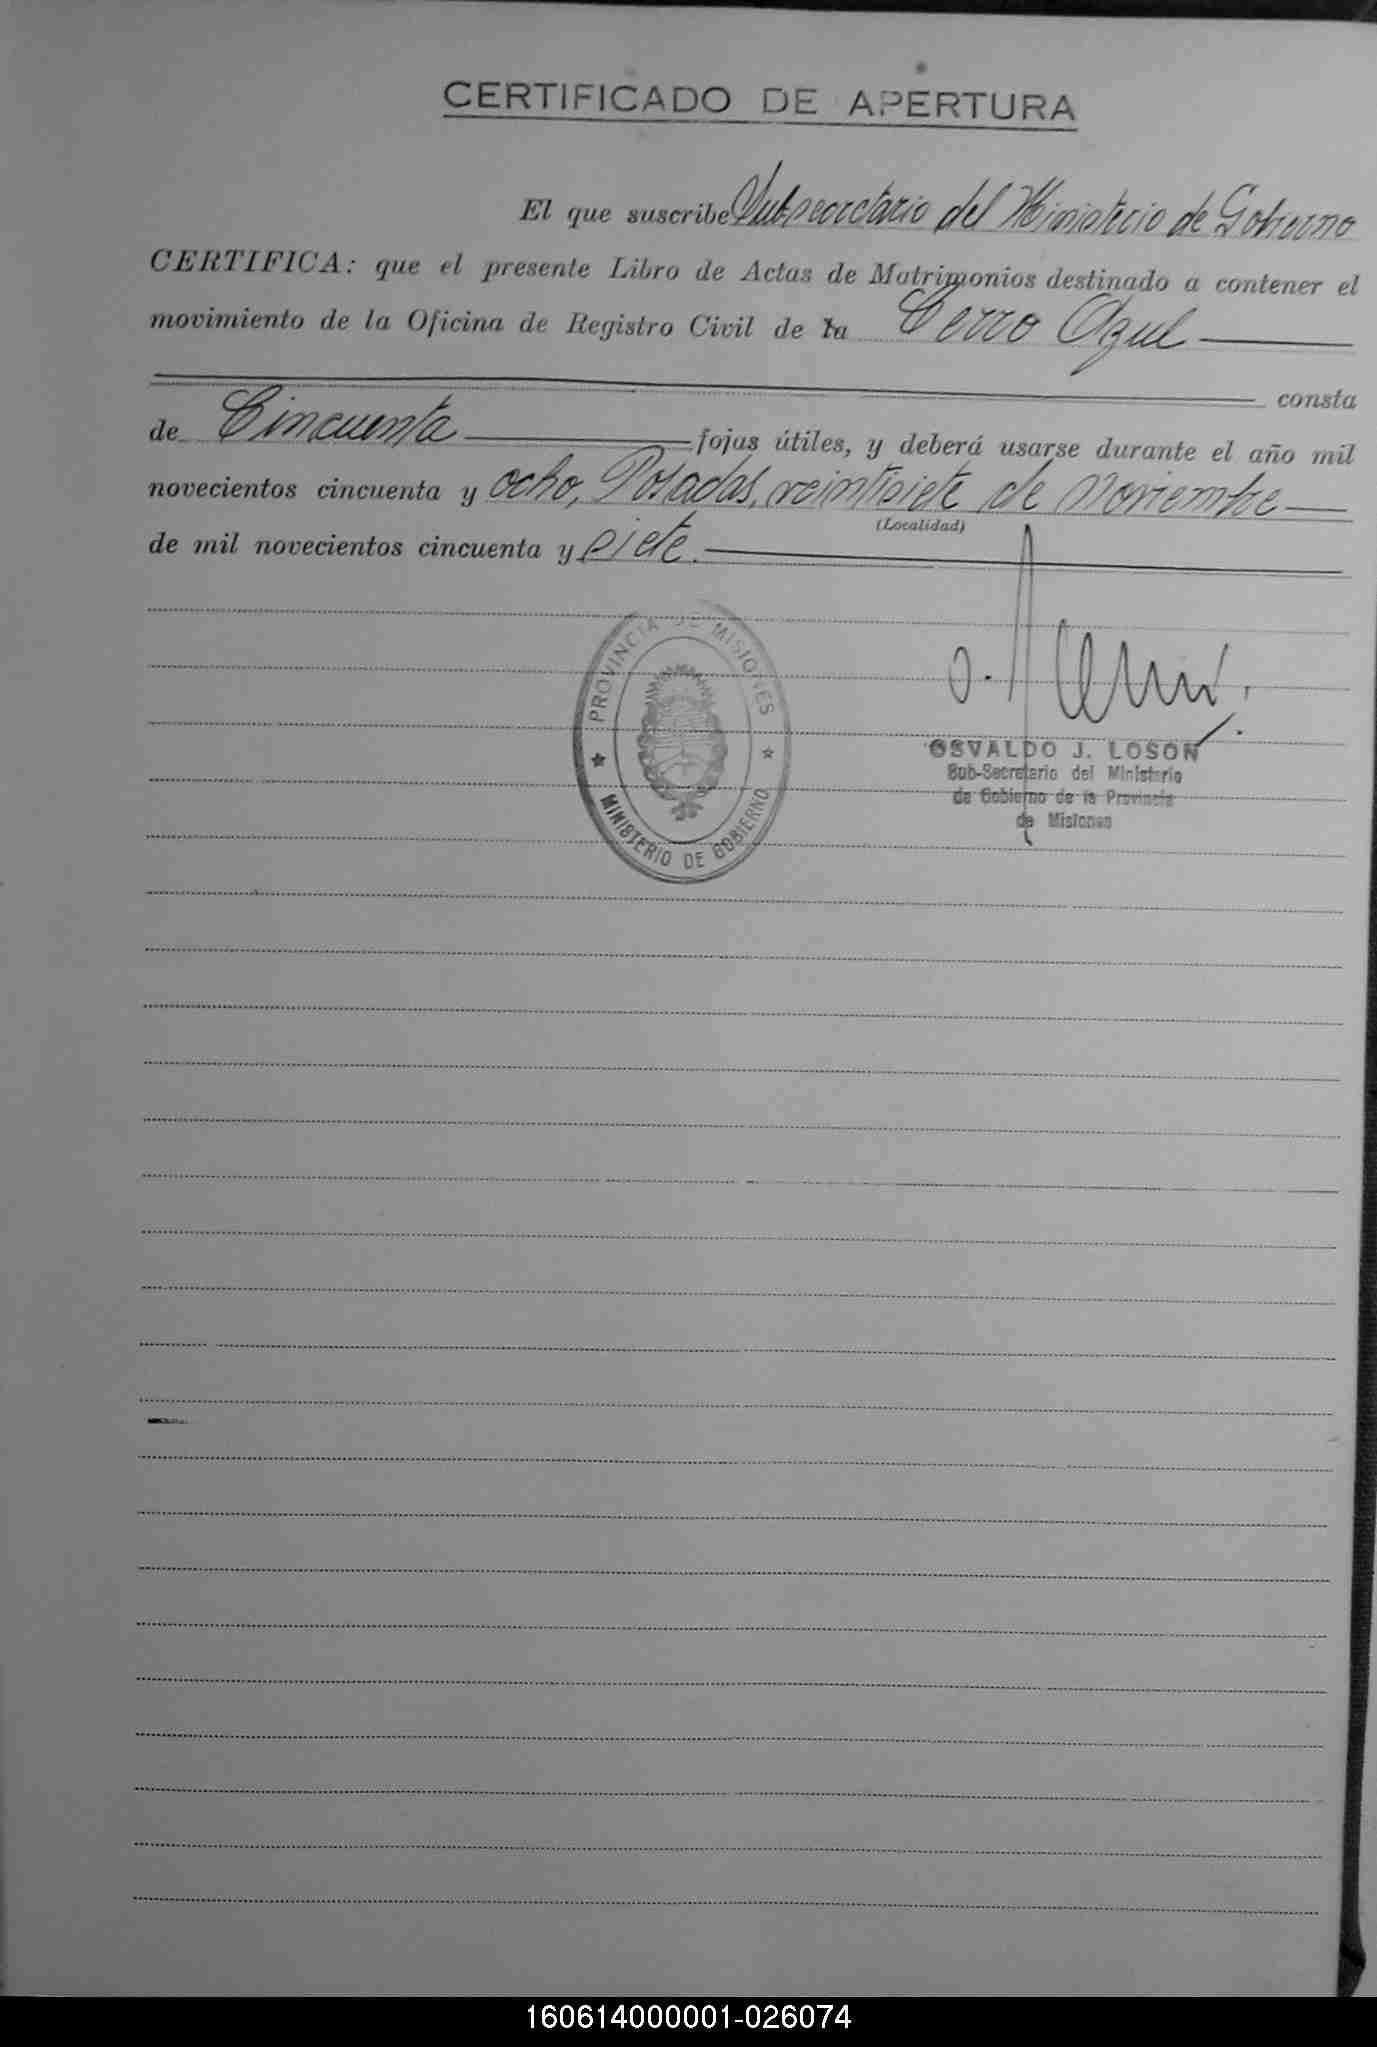 CERTIFICADO DE APERTURA
El que suscribe Subsecretario del Ministerio de Gobierno
CERTIFICA: que el presente Libro de Actas de Matrimonios destinado a contener el
movimiento de la Oficina de Registro Civil de la Cerro Azul
consta
de Cincuenta fojas útiles, y deberá usarse durante el año mil
novecientos cincuenta y ocho, Posadas, veintisiete de Noviembre
(Localidad)
de mil novecientos cincuenta y siete.
PROVINCIA DE MISIONES
MINISTERIO DE GOBIERNO
OSVALDO J. LOSON
Sub-Secretario del Ministerio
de Gobierno de la Provincia
de Misiones
160614000001-026074